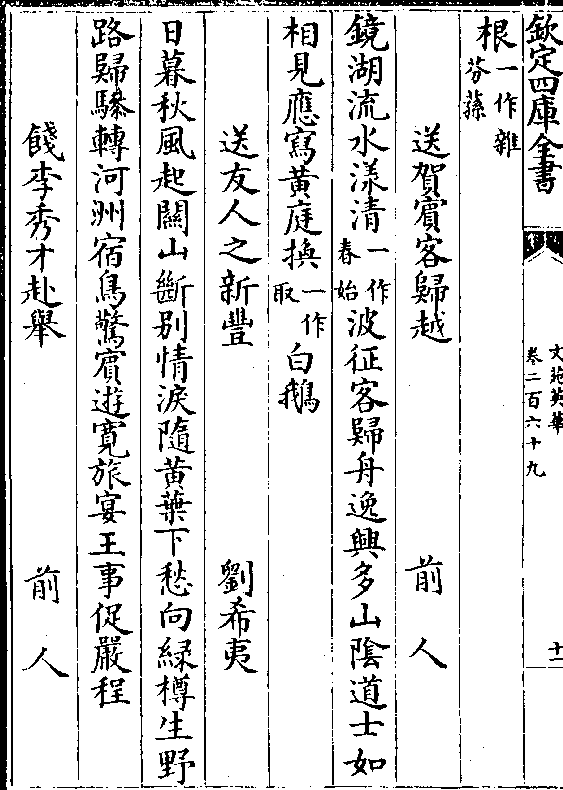 欽定四庫全書
文苑英華
卷二百六十九
十二
根一作雜芬蓀
送賀賓客歸越
前人
鏡湖流水漾清一作春始波征客歸舟逸興多山陰道士如
相見應寫黄庭換一作取白鵝
送友人之新豐
劉希夷
日暮秋風起關山斷別情淚隨黄葉下愁向緑樽生野
路歸驂轉河洲宿鳥驚賓遊寛旅宴王事促嚴程
餞李秀才赴舉
前人